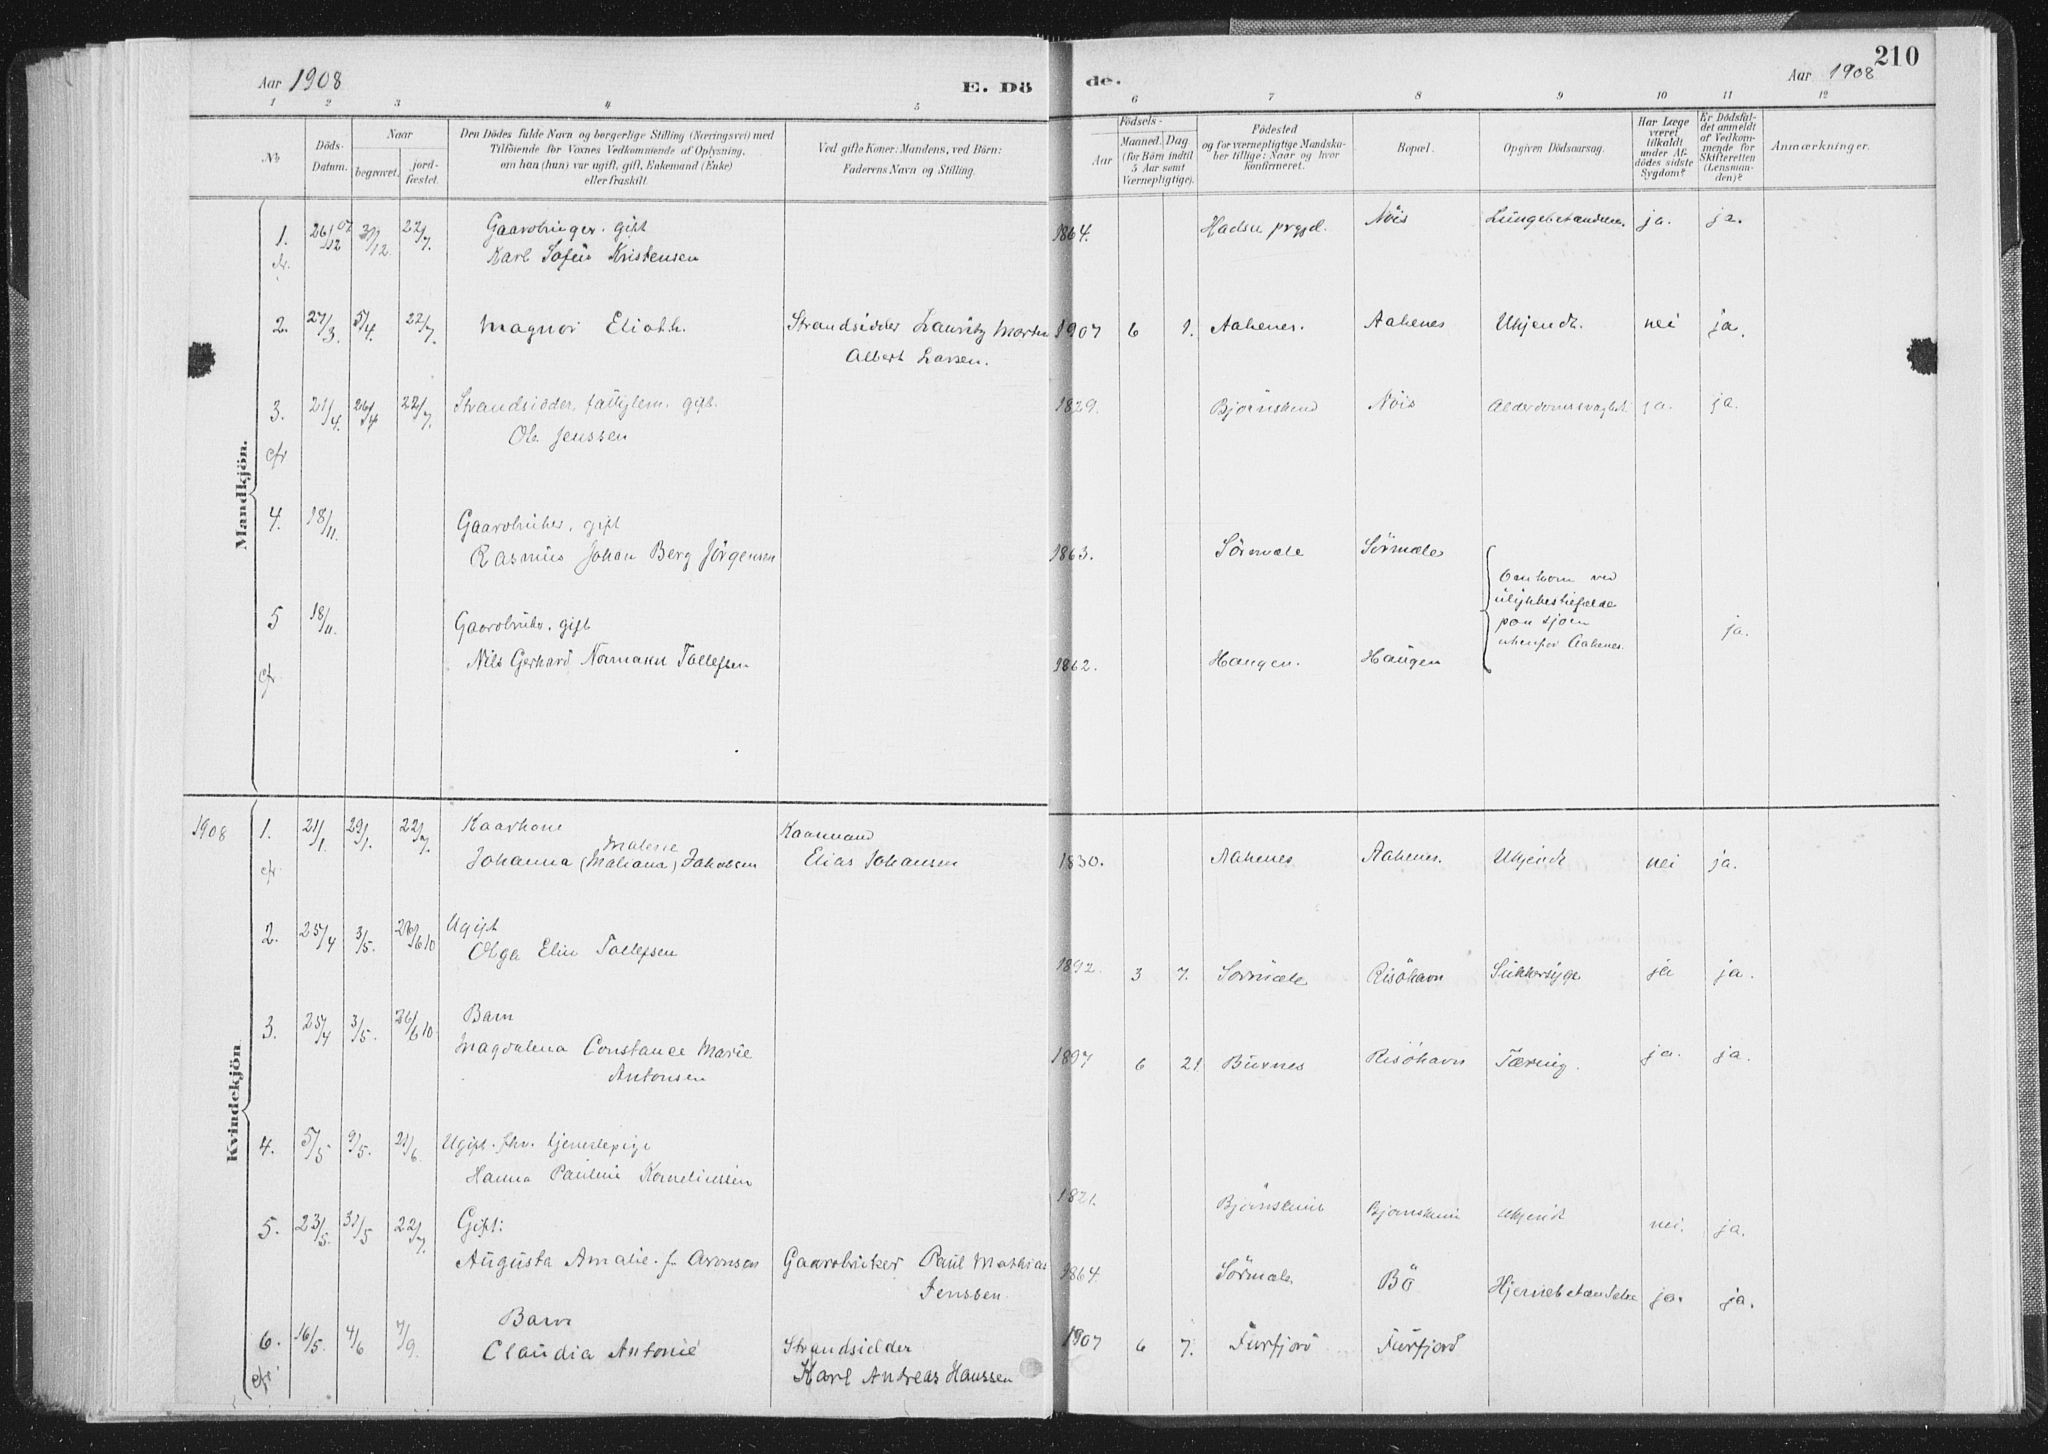 Aar 1908
E. Dö
de.
Aar 1908
210
1 2 3 4 5 6 7 8 9 10 11 12
No
Döds-
Datum.
Naar
begravet.
jord-
fæstet.
Den Dödes fulde Navn og borgerlige Stilling (Næringsvei) med
Tilföiende for Voxnes Vedkommende af Oplysning,
om han (hun) var ugift, gift, Enkemand (Enke)
eller fraskilt.
Ved gifte Koner: Mandens, ved Börn:
Faderens Navn og Stilling.
Födsels-
Aar
Maaned. Dag
(for Börn indtil
5 Aar samt
Værnepligtige).
Födested
og for værnepligtige Mandska-
ber tillige: Naar og hvor
konfirmeret.
Bopæl.
Opgiven Dödsaarsag.
Har Læge
været
tilkaldt
under Af-
dödes sidste
Sygdom?
Er Dödsfal-
det anmeldt
af Vedkom-
mende for
Skifteretten
(Lensman-
den)?
Anmærkninger.
Mandkjön.
1. 26/12 07 31/12. 22/7. Gaardbruger. gift
Karl Sofus Kristensen
1864. Hadsel prgjd. Nöis Lungebetændelse. ja. ja.
2. 27/3. 5/4. 22/7. Magnor Elioth. Strandsidder Lauritz Morten
Albert Larsen.
1907 6 1. Aahenes. Aahenes Ukjendt. nei ja.
3. 21/4. 26/4 22/7. Strandsidder, fattiglem. gift.
Ole Jenssen
cfr
1829. Bjørnskind Nöis Alderdomssvaghet ja. ja.
4. 18/11. Gaardbruker, gift
Rasmus Johan Berg Jörgensen
1863. Sörmæle Sörmæle
5 18/11. Gaardbruker, gift
Nils Gerhard Normann Tollefsen
cfr.
1862. Haugen. Haugen
Omkom ved
ulykkestilfælde
paa sjøen
utenfor Aahenes.
ja.
Kvindekjön
1908 1. 21/1. 29/1. 22/7. Kaarkone
Malene
Johanna (Maliana) Jakobsen
Kaarmand
Elias Johansen
cfr.
1830. Aahenes Aahenes. Ukjendt nei ja.
2. 25/4 3/5. 26/6 10 Ugift
Olga Elin Tollefsen
1892. 3 7. Sörmæle Risöhavn Sukkersyge ja ja.
3. 25/4 3/5. 26/6 10 Barn
Magdalena Constance Marie
Antonsen
1897 6 21 Buxnes Risöhavn Tæring. ja. ja.
4. 5/5 9/5. 21/6. Ugift. fhv. tjenestepige
Hanna Pauline Korneliussen
1821. Bjørnskind Bjørnskind Ukjendt nei. ja.
5. 23/5. 31/5 22/7. Gift:
Augusta Amalie. f. Aronsen Gaardbruker Paul Mathias
Jenssen
1864. Sörmæle Bö Hjernebetændelse ja. ja.
6. 16/5. 4/6 7/9. Barn
Claudia Antonie Strandsidder
Karl Andreas Hanssen
cfr.
1907 6 7. Fiurfjord Fiurfjord